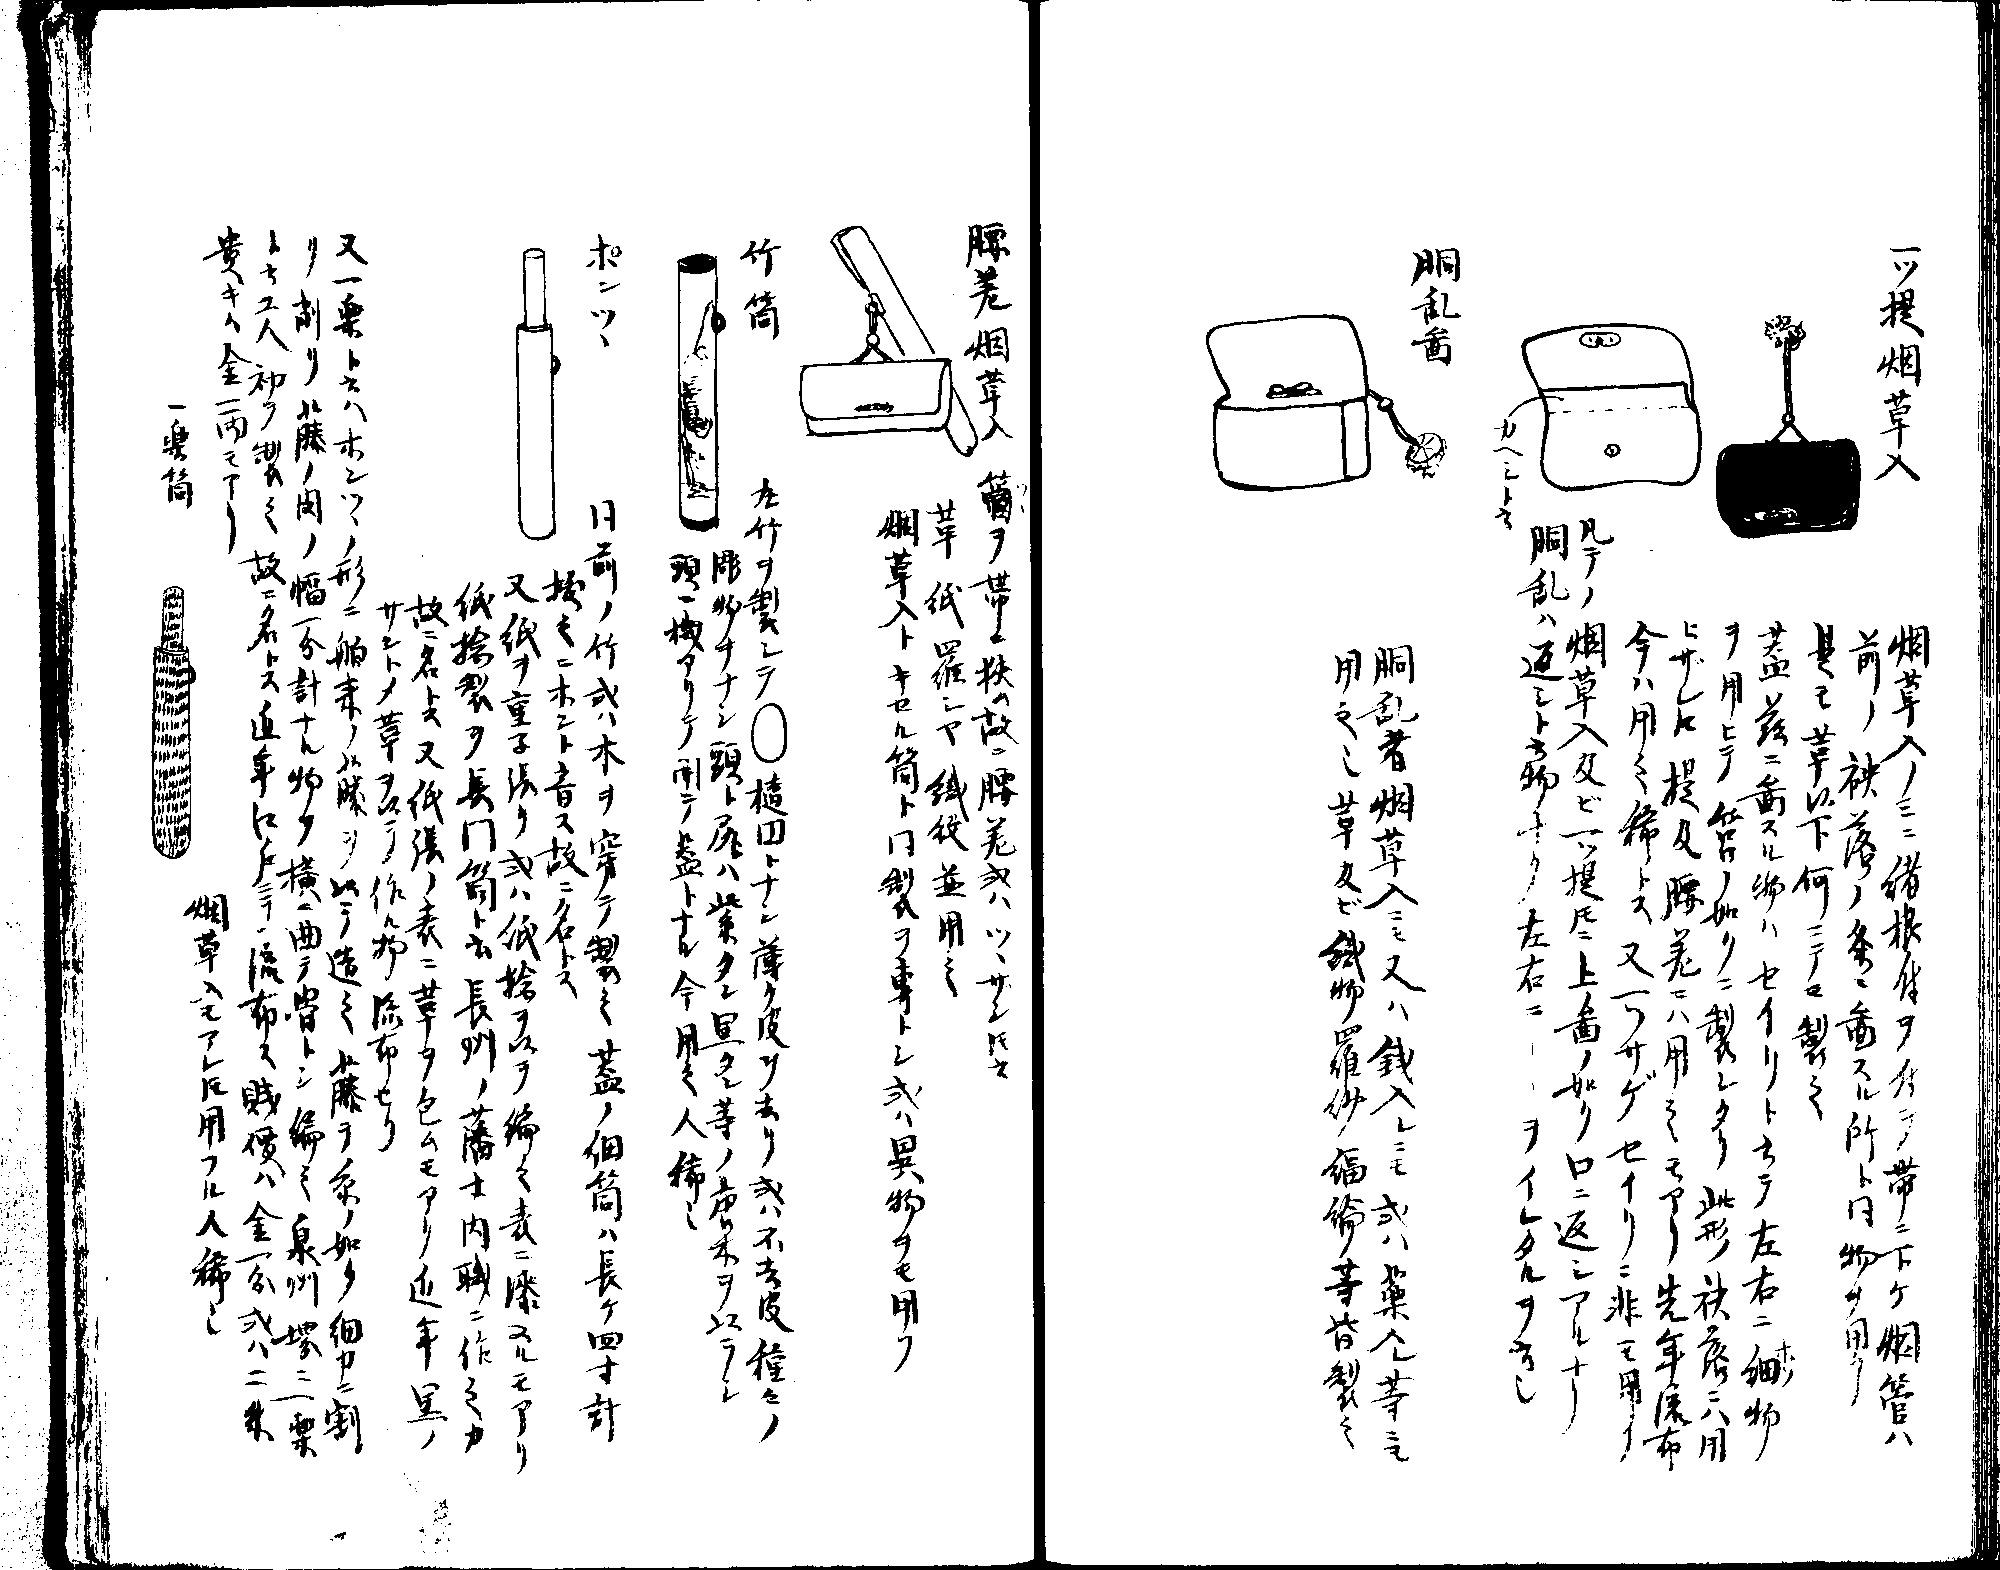 一ツ提烟草入
烟草入ノミニ緒根付ヲ付シ帯ニ下ケ烟管ハ
前ノ袂落ノ条ニ畵スル所ト同物ヲ用フ
是モ革以下何ニテモ製ス
蓋茲ニ畵スル物ハセイリト云テ左右ニ細物
ヲ用ヒテ筥ノ如クニ製シタリ此形袂落ニハ用
ヒザレ𪜈提及腰差ニハ用ヒシモアリ先年流布
今ハ用ヒ稀トス又一ツサゲセイリニ非モ用イ
凡テノ烟草入及ビ一ツ提𪜈ニ上畵ノ如ク口ニ返シアルナリ
胴乱ハ返シト云物ナク左右ニ ヲイレタルヲ
カヘシト云
胴乱畵
胴乱者烟草入ニモ又ハ銭入レニモ或ハ薬入レ等ニモ
用之シ革及ビ織物羅紗緬綸等皆製ス
腰差烟草入
筒ヲ帯ニ挟ム故ニ腰差或ハツヽザシ𪜈云
革紙羅シヤ織紋並用ヒ
烟草入トキセル筒ト同製ヲ専トシ或ハ異物ヲモ用フ
竹筒
左竹ヲ製シテ〇楕円トナシ薄ク皮ヲ去リ或ハ不去皮種々ノ
彫物ヲナシ頭ト尾ハ紫タン黒タン等ノ唐木ヲ以テシ
頭ニ機アリテ開テ蓋トナル今用フ人稀也
ポンツヽ
同前ノ竹或ハ木ヲ穿テ製シ蓋ノ細筒ハ長ケ四寸計
抜クニポント音ス故ニ名トス
又紙ヲ重子張リ或ハ紙捻ヲ以テ編ミ表ニ漆スルモアリ
紙捻製ヲ長門筒ト云長州ノ藩士内職ニ作シカ
故ニ名トス又紙張ノ表ニ革ヲ包ムモアリ近年黒ノ
サントメ革ヲ以テ作ル物流布セリ
又一楽ト云ハポンツヽノ形ニ舶来ノ藤ヲ以テ造ミ藤ヲ糸ノ如ク細カニ割
リ削リ藤ノ肉ノ幅一分計ナル物ヲ横ニ曲テ骨トシ編ミ泉州堺ニ一楽
ト云工人初テ製ス故ニ名トス近年江戸ニテ流布ス賎價ハ金一分或ハ二朱
貴キハ金一両モアリ
一楽筒
烟草入モアレ𪜈用フル人稀也